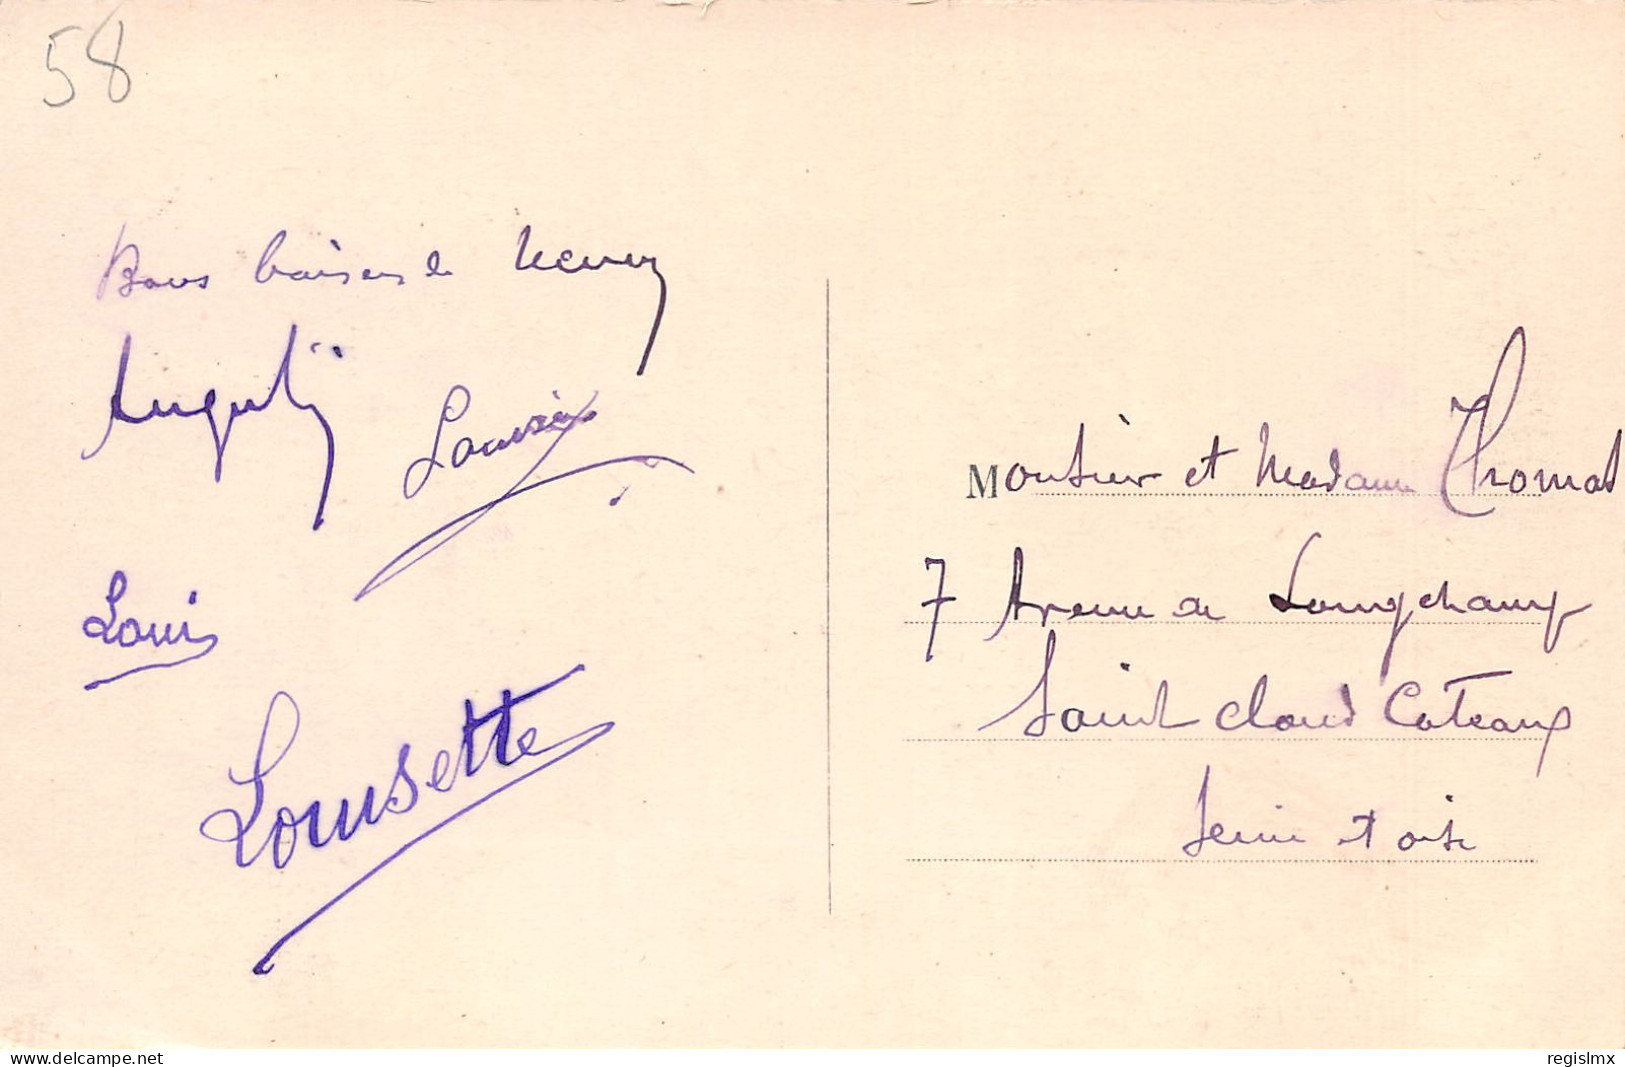 58
Bons baisers de
Louis
Louisette
Monsieur et Madame Thomas
7 Avenue de Longchamp
Saint Cloud Coteaux
Seine et oise
www.delcampe.net
regislmx